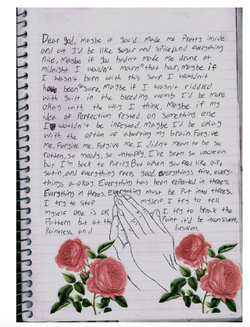 Dear god, maybe if you'd made me pretty inside
and out I'd be like sugar and spice, and everything
nice, maybe if you hadn't made me drunk at
midnight I wouldn't mourn that hour, maybe if
I wasn't born with this soup I wouldn't
have been sore, maybe if I wasn't riddled
with guilt in the bleeding womb I'd be more
okay with the way I think, maybe if my
idea of perfection rested on something else
I wouldn't be infested, maybe I'd be okay
with the option of burning my brain. forgive
me, forgive me, forgive me, I didn't mean to be so
rotten, so moody, so unhappy I've been so unclean
but I'm back to purity now, when you feel like air,
satin, and everything feels good, everythings fine, every-
things a-okay. Everything has been repeated in threes.
Everything in threes, everything must be put into threes.
I try to stop myself, I try to tell
myself one is ok I try to break the
pattern but at this point it's
pointless, and broken.